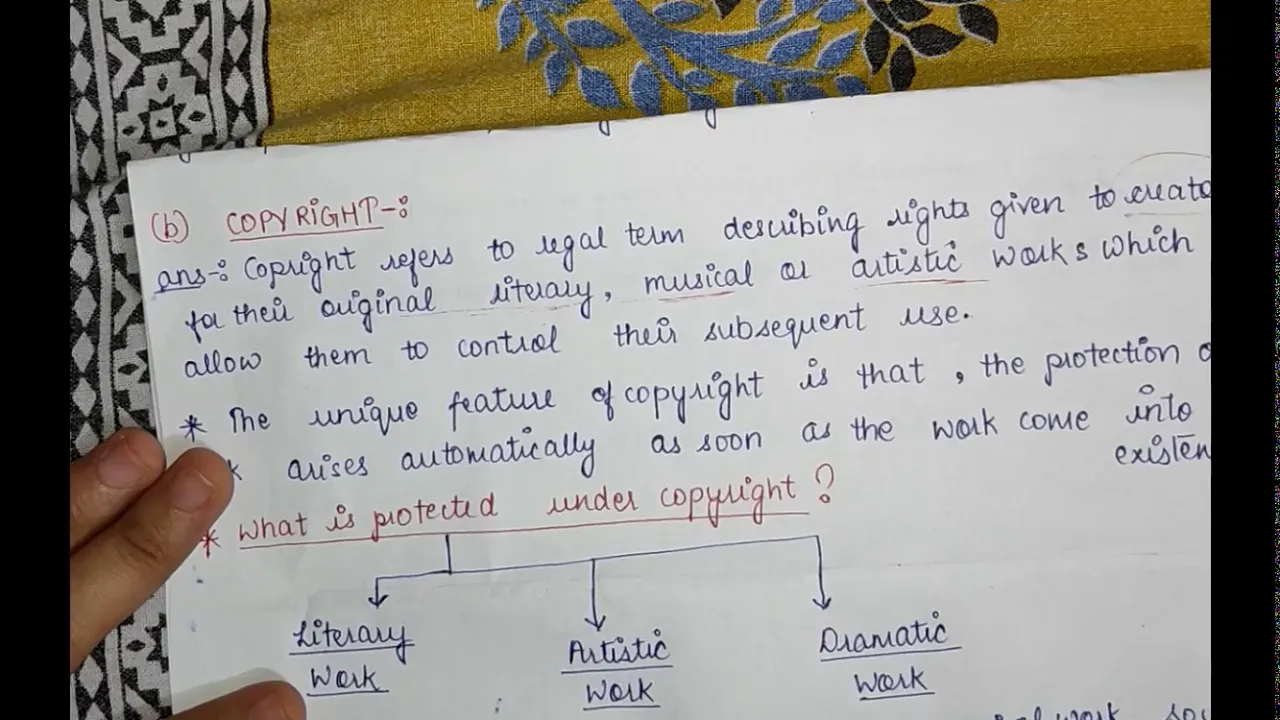 (b) COPYRIGHT-:
ans-: Copright refers to legal term describing rights given to creato
for their original literary, musical or artistic works which
allow them to control their subsequent use.
* The unique feature of copyright is that, the protection o
k arises automatically as soon as the work come into
existen
* What is protected under copyright?
Literary Artistic Dramatic
Work Work Work
work